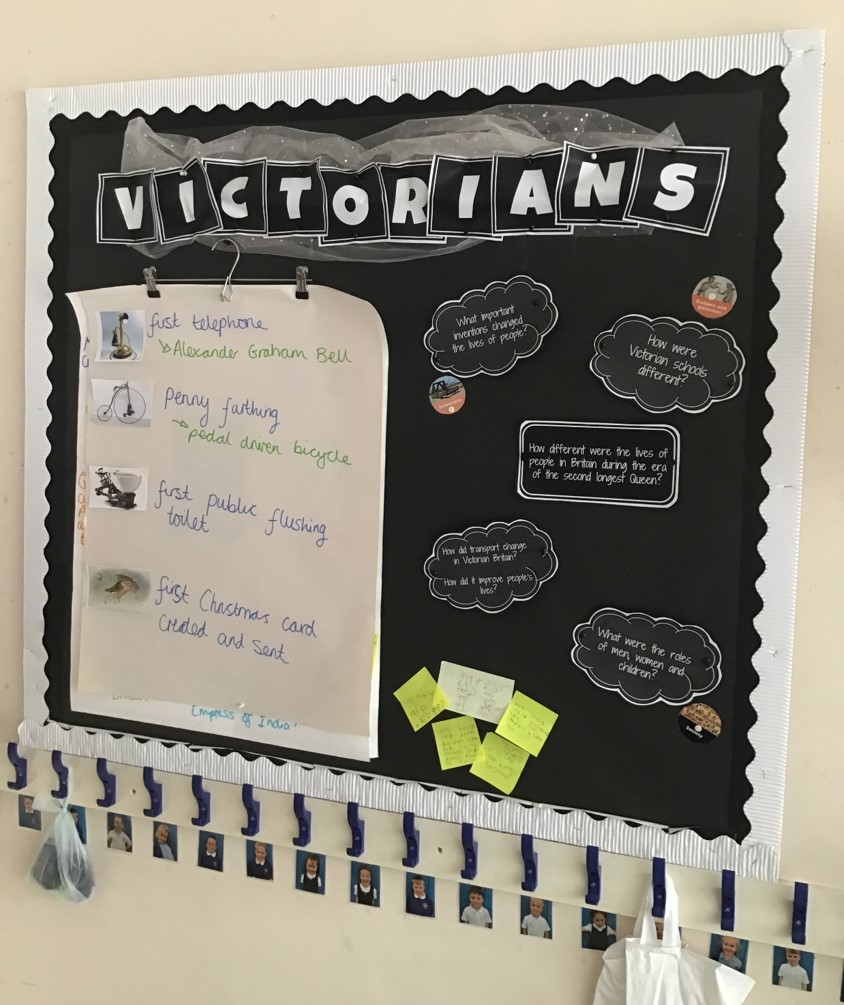 VICTORIANS
first telephone
Alexander Graham Bell
Penny farthing
pedal driven bicycle
first public flushing
toilet
first Christmas card
created and sent
Empress of India'
What important
inventions changed
the lives of people?
How were
Victorian schools
different?
How different were the lives of
people in Britain during the era
of the second longest Queen?
How did transport change
in Victorian Britain?
How did it improve people's
lives?
What were the roles
of men, women and
children?
Society